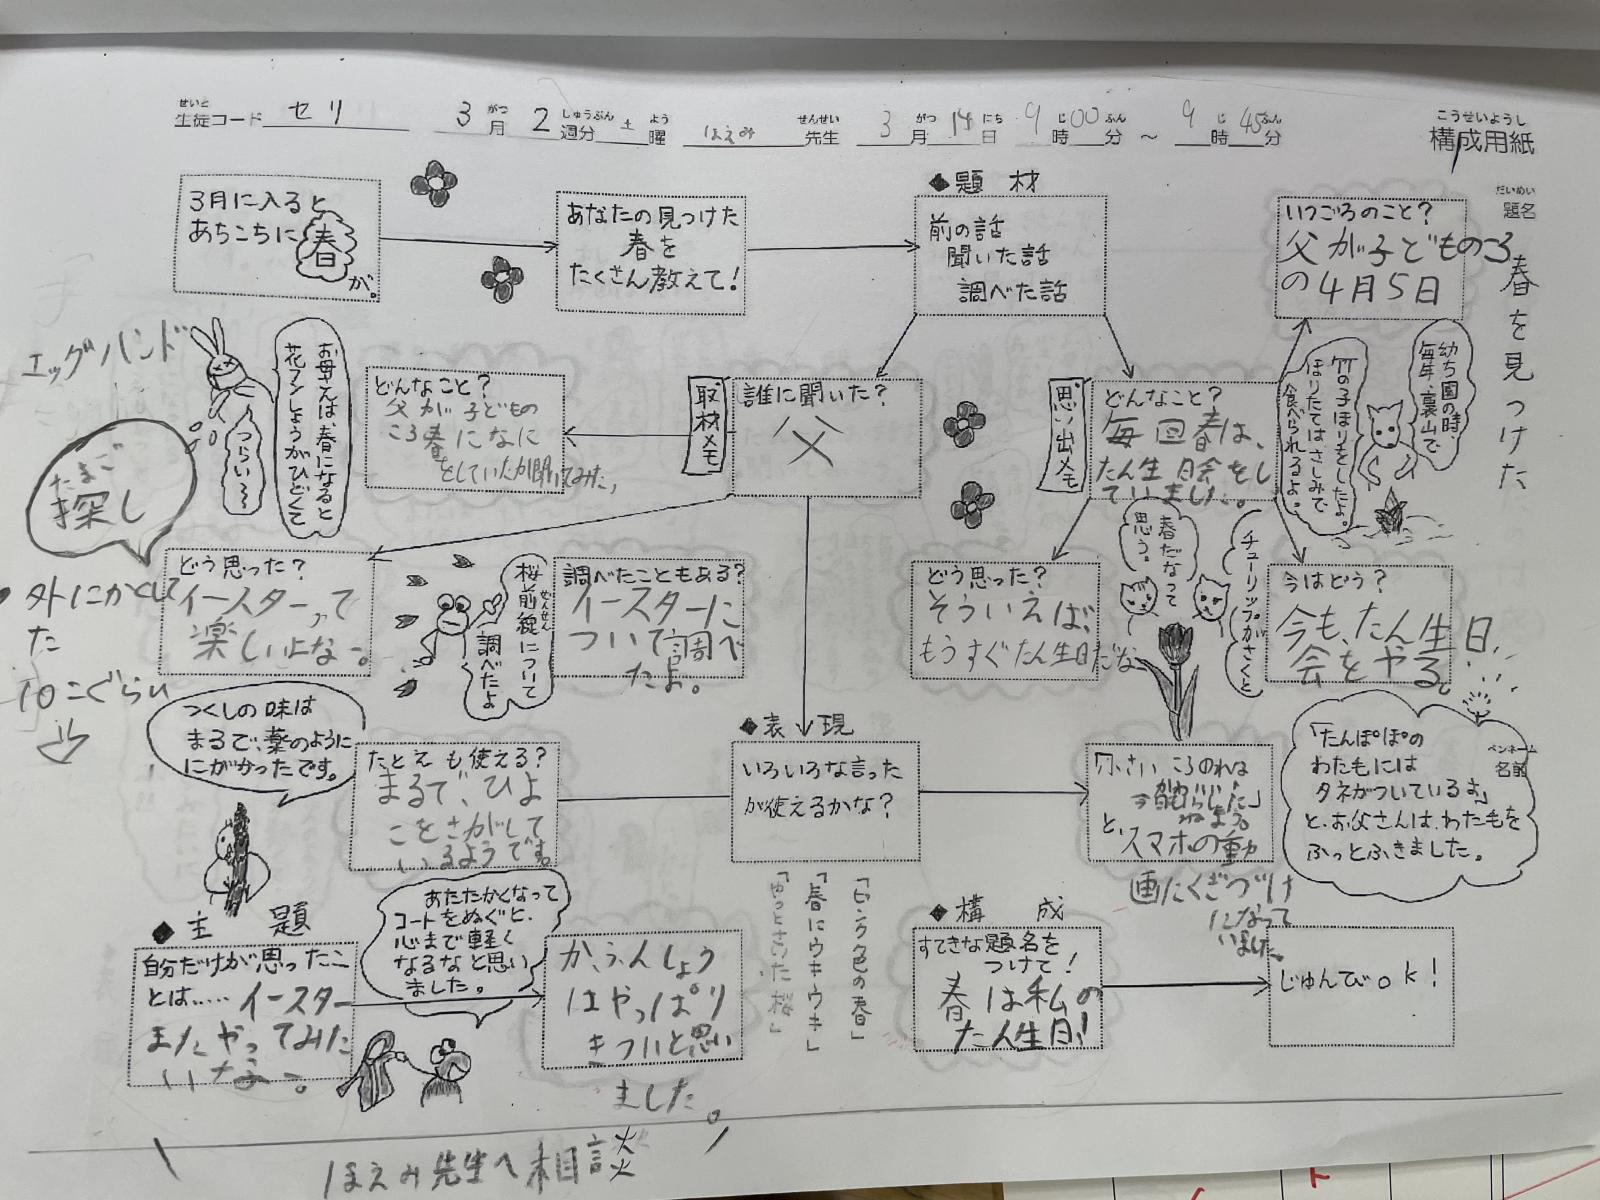 せいと
生徒コード セリ 3月 2週分 土曜 ほえみ先生 3月14日 9時00分 〜 9時45分
こうせいようし
構成用紙
だいめい
題名
春を見つけた
3月に入ると
あちこちに春
が。
あなたの見つけた
春を
たくさん教えて!
◆題材
前の話
聞いた話
調べた話
いつごろのこと?
父が子どものころ
の4月5日
エッグハンド
お母さんは、春になると
花フンしょうがひどくて
つらい〜
どんなこと?
父が子どもの
ころ春になに
をしていたか聞いてみた。
取材メモ
誰に聞いた?
父
思い出メモ
どんなこと?
毎回春は、
たん生日会をし
ていました。
幼ち園の時、
毎年、裏山で
竹の子ほりをしたよ。
ほりたてはさしみで
食べられるよ。
たまご
探し
外にかくして
た
10こぐらい
どう思った?
イースターって
楽しいよなー。
桜前線について
ぜんせん
調べたよ
調べたこともある?
イースターに
ついて調べ
たよ。
どう思った?
そういえば、
もうすぐたん生日だな
チューリップがさくと
春だなって
思う。
今はどう?
今も、たん生日
会をやる。
つくしの味は
まるで、薬のように
にがかったです。
たとえも使える?
まるで、ひよ
こをさがして
いるようです。
◆表現
いろいろな言った
が使えるかな?
「ピンク色の春」
「春にウキウキ」
「やっとさいた桜」
「小さいころのれは
と、スマホの動
画にくぎづけ
になって
いました。
「たんぽぽの
わたもには
タネがついているよ」
と、お父さんは、わた毛を
ふっとふきました。
ペンネーム
名前
◆主題
自分だけが思ったこ
とは……イースター
またやってみた
いなー。
あたたかくなって
コートをぬぐと、
心まで軽く
なるなと思い
ました。
か、ふんしょう
はやっぱり
きついと思い
ました。
◆構成
すてきな題名を
つけて!
春は私の
たん生日!
じゅんびok!
ほえみ先生へ相談